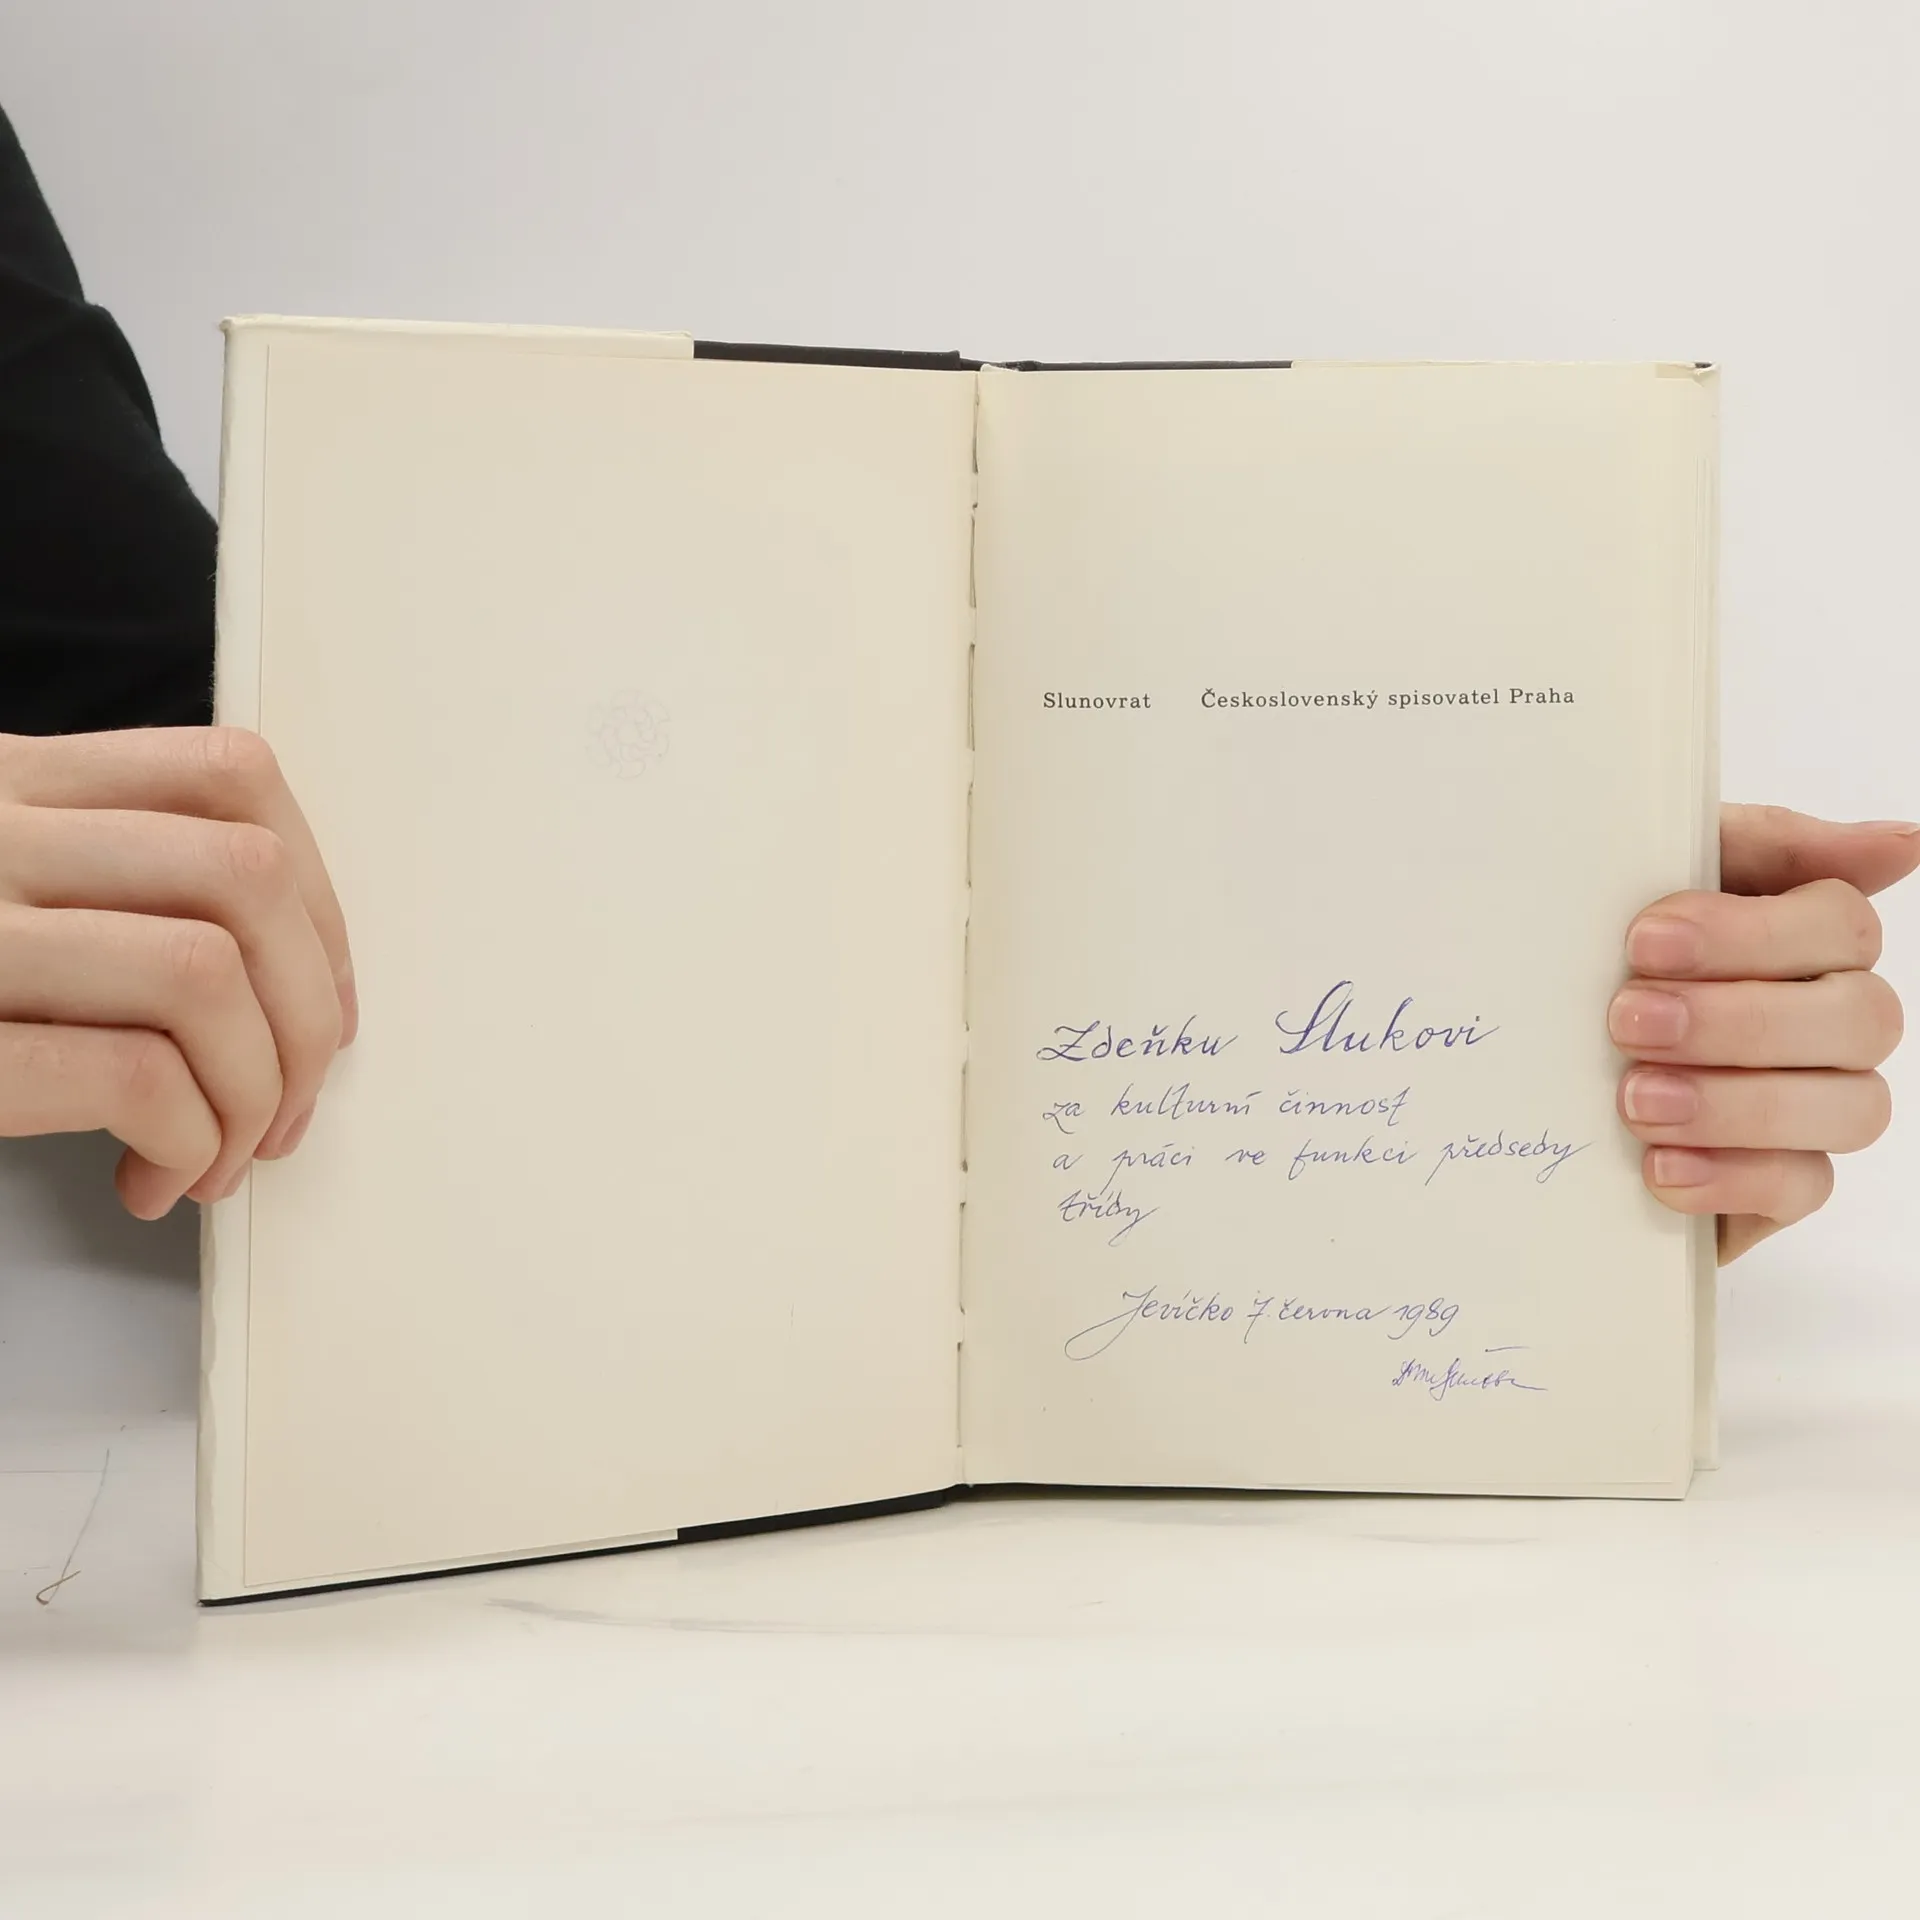 Slunovrat Československý spisovatel Praha
Zdeňku Slukovi
za kulturní činnost
a práci ve funkci předsedy
třídy
Jevíčko 7. června 1989